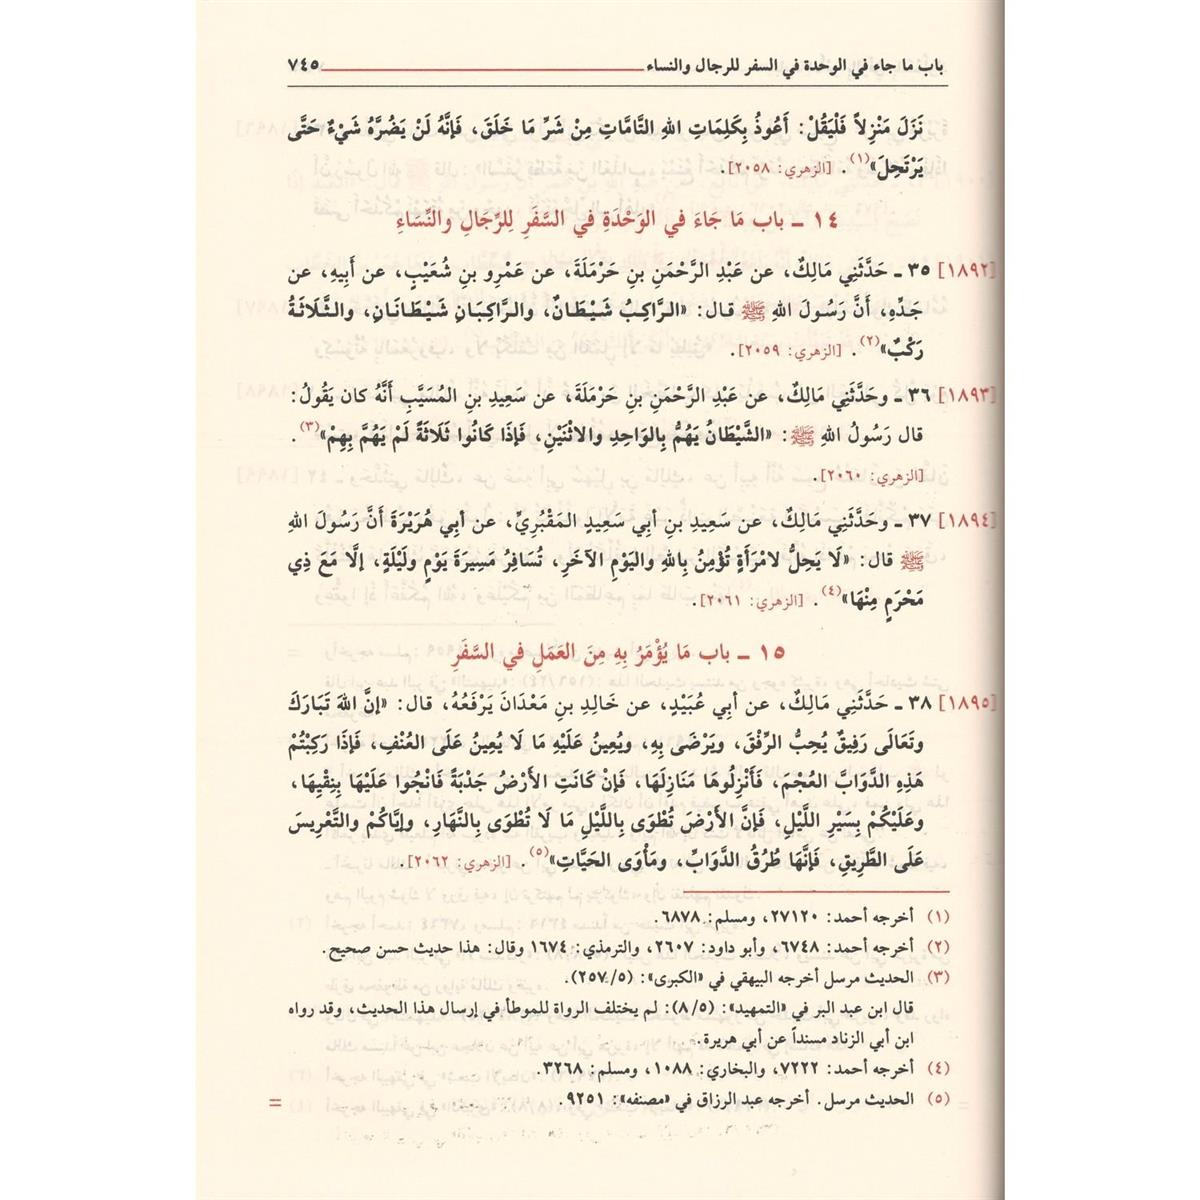 باب ما جاء في الوحدة في السفر للرجال والنساء ٧٤٥
نَزَلَ مَنْزِلاً فَلْيَقُلْ: أَعُوذُ بِكَلِمَاتِ اللهِ التَّامَّاتِ مِنْ شَرِّ مَا خَلَقَ، فَإِنَّهُ لَنْ يَضُرَّهُ شَيْءٌ حَتَّى
يَرْتَحِلَ»(١). [الزهري: ٢٠٥٨].
١٤ ـ باب مَا جَاءَ في الوَحْدَةِ في السَّفَرِ لِلرِّجَالِ والنِّسَاءِ
[١٨٩٢] ٣٥ ـ حَدَّثَنِي مَالِكٌ، عن عَبْدِ الرَّحْمَنِ بنِ حَرْمَلَةَ، عن عَمْرِو بنِ شُعَيْبٍ، عن أَبِيهِ، عن
جَدِّهِ، أَنَّ رَسُولَ اللهِ ﷺ قال: «الرَّاكِبُ شَيْطَانٌ، والرَّاكِبَانِ شَيْطَانَانِ، والثَّلَاثَةُ
رَكْبٌ»(٢). [الزهري: ٢٠٥٩].
[١٨٩٣] ٣٦ ـ وحَدَّثَنِي مَالِكٌ، عن عَبْدِ الرَّحْمَنِ بنِ حَرْمَلَةَ، عن سَعِيدِ بنِ المُسَيَّبِ أَنَّهُ كان يَقُولُ:
قال رَسُولُ اللهِ ﷺ: «الشَّيْطَانُ يَهُمُّ بِالوَاحِدِ والاثْنَيْنِ، فَإِذَا كَانُوا ثَلَاثَةً لَمْ يَهُمَّ بِهِمْ»(٣).
[الزهري: ٢٠٦٠].
[١٨٩٤] ٣٧ ـ وحَدَّثَنِي مَالِكٌ، عن سَعِيدِ بنِ أبي سَعِيدٍ المَقْبُرِيِّ، عن أبي هُرَيْرَةَ أَنَّ رَسُولَ اللهِ
ﷺ قال: «لَا يَحِلُّ لامْرَأَةٍ تُؤْمِنُ بِاللهِ واليَوْمِ الآخَرِ، تُسَافِرُ مَسِيرَةَ يَوْمٍ ولَيْلَةٍ، إلَّا مَعَ ذِي
مَحْرَمٍ مِنْهَا»(٤). [الزهري: ٢٠٦١].
١٥ ـ باب مَا يُؤْمَرُ بِهِ مِنَ العَمَلِ في السَّفَرِ
[١٨٩٥] ٣٨ ـ حَدَّثَنِي مَالِكٌ، عن أبي عُبَيْدٍ، عن خَالِدِ بنِ مَعْدَانَ يَرْفَعُهُ، قال: «إنَّ اللهَ تَبَارَكَ
وتَعَالَى رَفِيقٌ يُحِبُّ الرِّفْقَ، ويَرْضَى بِهِ، ويُعِينُ عَلَيْهِ مَا لَا يُعِينُ عَلَى العُنْفِ، فَإِذَا رَكِبْتُمْ
هَذِهِ الدَّوَابَّ العُجْمَ، فَأَنْزِلُوهَا مَنَازِلَهَا، فَإِنْ كَانَتِ الأَرْضُ جَدْبَةً فَانْجُوا عَلَيْهَا بِنِقْيِهَا،
وعَلَيْكُمْ بِسَيْرِ اللَّيْلِ، فَإِنَّ الأَرْضَ تُطْوَى بِاللَّيْلِ مَا لَا تُطْوَى بِالنَّهَارِ، وإيَّاكُمْ والتَّعْرِيسَ
عَلَى الطَّرِيقِ، فَإِنَّهَا طُرُقُ الدَّوَابِّ، ومَأْوَى الحَيَّاتِ»(٥). [الزهري: ٢٠٦٢].
(١) أخرجه أحمد: ٢٧١٢٠، ومسلم: ٦٨٧٨.
(٢) أخرجه أحمد: ٦٧٤٨، وأبو داود: ٢٦٠٧، والترمذي: ١٦٧٤ وقال: هذا حديث حسن صحيح.
(٣) الحديث مرسل أخرجه البيهقي في «الكبرى»: (٢٥٧/٥).
قال ابن عبد البر في «التمهيد»: (٨/٥): لم يختلف الرواة للموطأ في إرسال هذا الحديث، وقد رواه
ابن أبي الزناد مسنداً عن أبي هريرة.
(٤) أخرجه أحمد: ٧٢٢٢، والبخاري: ١٠٨٨، ومسلم: ٣٢٦٨.
(٥) الحديث مرسل. أخرجه عبد الرزاق في «مصنفه»: ٩٢٥١. =